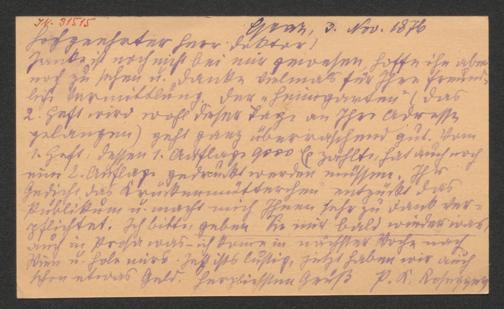 J.N. 31515
Graz, 3. Nov. 1876
Hochgeehrter Herr Doktor!
Janke ist noch nicht bei mir gewesen, hoffe ihn aber
noch zu sehen u. danke vielmals für Ihre freund-
liche Vermittlung. Der „Heimgarten" (das
2. Heft wird wohl dieser Tage an Ihre Adresse
gelangen) geht ganz überraschend gut. Vom
1. Heft, dessen 1. Auflage 9000 Ex zählte, hat auch noch
eine 2. Auflage gedruckt werden müssen. Ihr
Gedicht, das Krückenmütterchen entzückt das
Publikum u. macht mich Ihnen sehr zu Dank ver-
pflichtet. Ich bitte, geben Sie mir bald wieder was,
auch in Prosa was – ich komme in nächster Woche nach
Wien u. hole mirs. Jetzt ists lustig, jetzt haben wir auch
schon etwas Geld. Herzlichsten Gruß P. K. Rosegger